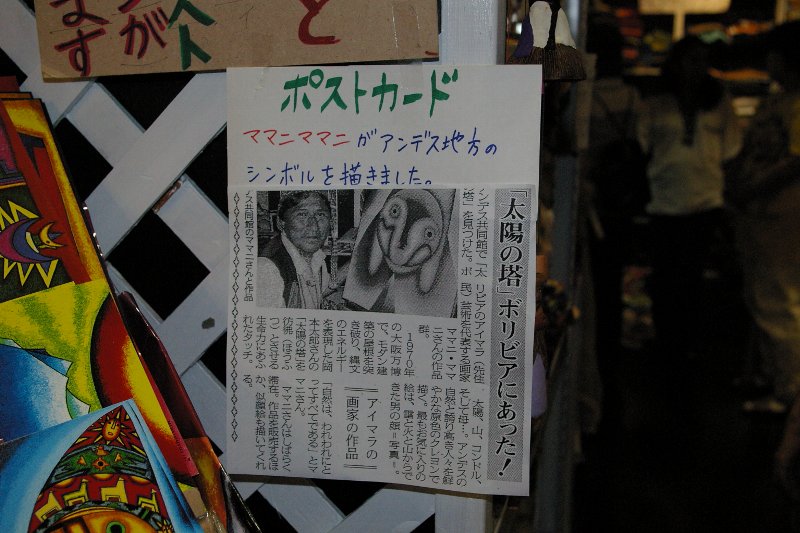 ますンがと
ポストカード
ママニママニがアンデス地方の
シンボルを描きました。
「太陽の塔」ボリビアにあった！
ンデス共同館で「太
塔」を見つけた。ボ
リビアのアイマラ（先住
民）芸術を代表する画家
ママニ・ママ
ニさんの作品
群。
1970年
の大阪万博
で、モダン建
築の屋根を突
き破り、縄文
のエネルギー
を表現した岡
本太郎さんの
「太陽の塔」を
彷彿（ほうふ
つ）とさせる
生命力にあふ
れたタッチ。
デス共同館のママニさんと作品
太陽、山、コンドル、
そして母…。アンデスの
自然と誇り高き人々を鮮
やかな原色のクレヨンで
描く。最もお気に入りの
絵は、雲と火と山からで
きた男の顔＝写真＝。
アイマラの
画家の作品
「自然は、われわれにと
ってすべてである」とマ
マニさん。
ママニさんはしばらく
滞在。作品を販売するほ
か、似顔絵も描いてくれ
る。